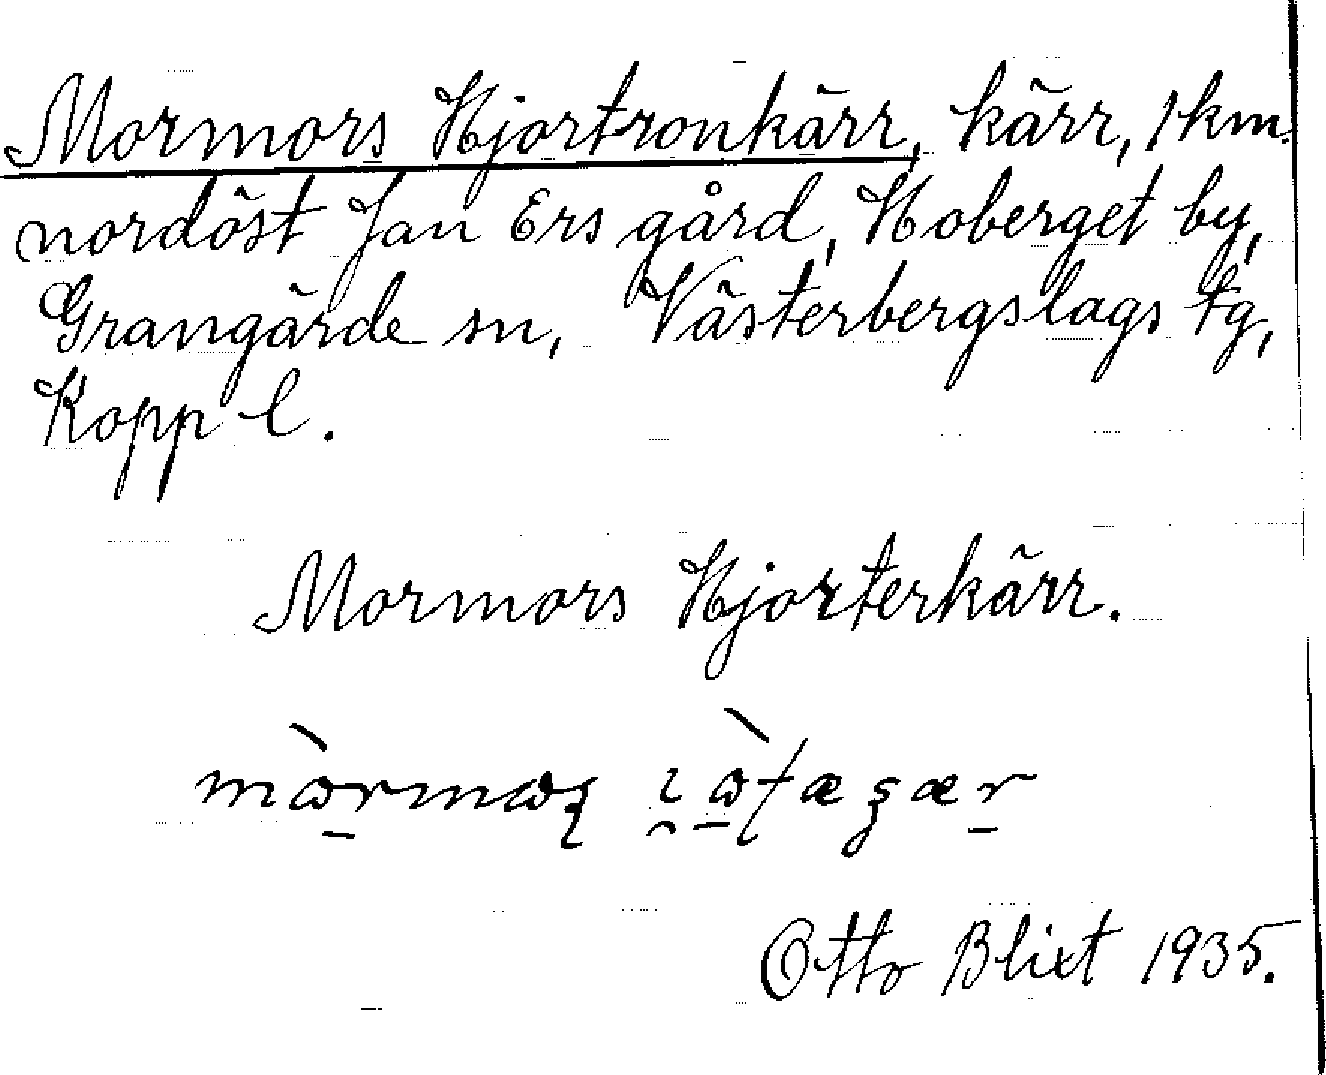 Mormors Hjortronkärr, kärr, 1 km.
nordöst Jan Ers gård, Hoberget by,
Grangärde sn, Västerbergslags tg,
Kopp l.
Mormors Hjorterkärr.
Otto Blixt 1935.